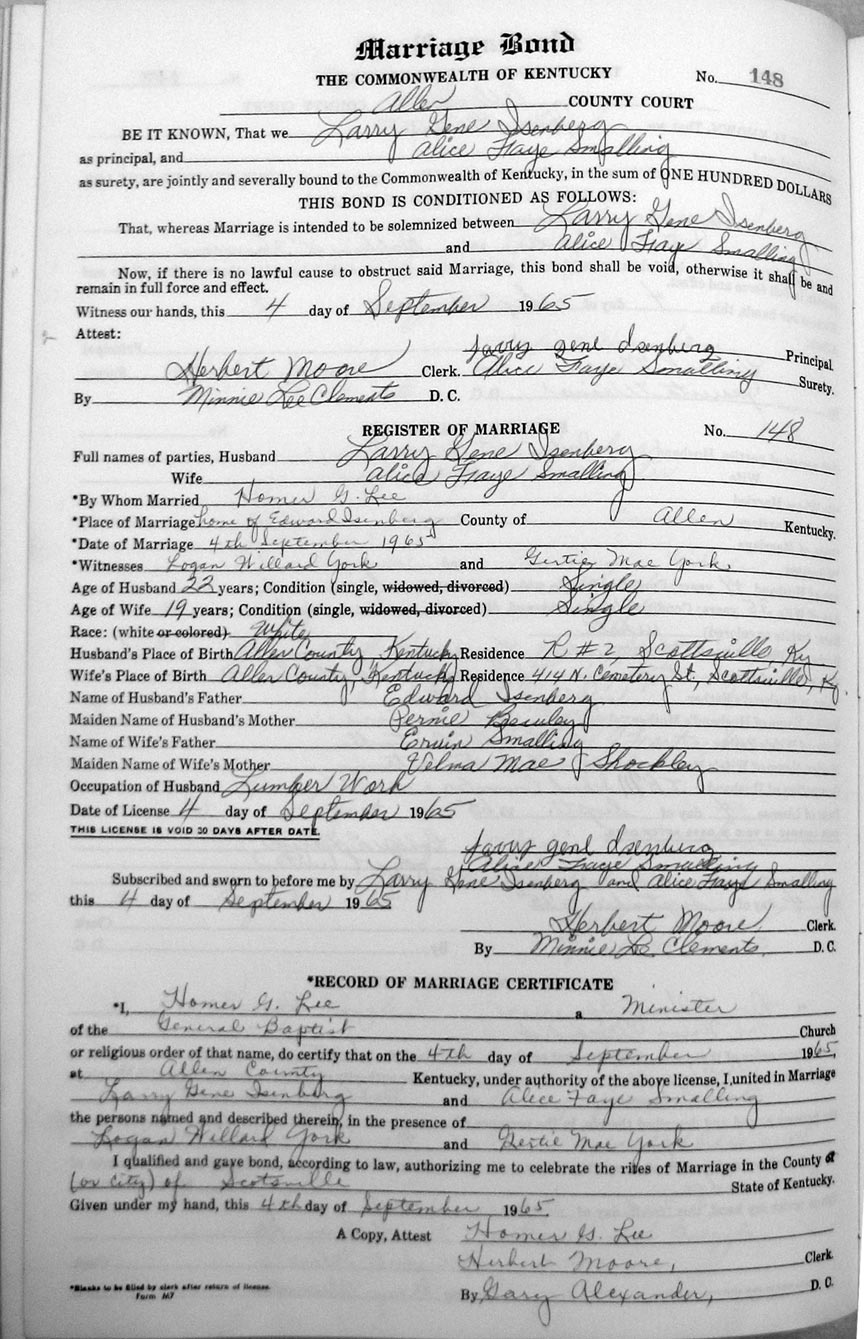 Marriage Bond
THE COMMONWEALTH OF KENTUCKY No. 148
Allen COUNTY COURT
BE IT KNOWN, That we Larry Gene Isenberg
as principal, and Alice Faye Smalling
as surety, are jointly and severally bound to the Commonwealth of Kentucky, in the sum of ONE HUNDRED DOLLARS
THIS BOND IS CONDITIONED AS FOLLOWS:
That, whereas Marriage is intended to be solemnized between Larry Gene Isenberg
and Alice Faye Smalling
Now, if there is no lawful cause to obstruct said Marriage, this bond shall be void, otherwise it shall be and
remain in full force and effect.
Witness our hands, this 4 day of September 1965
Attest:
Larry gene Isenberg Principal.
Herbert Moore Clerk. Alice Faye Smalling Surety.
By Minnie Lee Clements D. C.
REGISTER OF MARRIAGE No. 148
Full names of parties, Husband Larry Gene Isenberg
Wife Alice Faye Smalling
*By Whom Married Homer G. Lee
*Place of Marriage home of Edward Isenberg County of Allen Kentucky.
*Date of Marriage 4th September 1965
*Witnesses Logan Willard York and Gertie Mae York.
Age of Husband 22 years; Condition (single, widowed, divorced) Single
Age of Wife 19 years; Condition (single, widowed, divorced) Single
Race: (white or colored) White
Husband's Place of Birth Allen County, Kentucky Residence R #2, Scottsville, Ky
Wife's Place of Birth Allen County, Kentucky Residence 414 N. Cemetery St., Scottsville, Ky.
Name of Husband's Father Edward Isenberg
Maiden Name of Husband's Mother Pernie
Name of Wife's Father Ervin Smalling
Maiden Name of Wife's Mother Velma Mae Shockley
Occupation of Husband Lumber Work
Date of License 4 day of September 1965
THIS LICENSE IS VOID 30 DAYS AFTER DATE.
Larry gene Isenberg
Alice Faye Smalling
Subscribed and sworn to before me by Larry Gene Isenberg and Alice Faye Smalling
this 4 day of September 1965
Herbert Moore Clerk.
By Minnie Lee Clements D. C.
*RECORD OF MARRIAGE CERTIFICATE
*I, Homer G. Lee a Minister
of the General Baptist Church
or religious order of that name, do certify that on the 4th day of September 1965,
at Allen County Kentucky, under authority of the above license, I, united in Marriage
Larry Gene Isenberg and Alice Faye Smalling
the persons named and described therein, in the presence of
Logan Willard York and Gertie Mae York
I qualified and gave bond, according to law, authorizing me to celebrate the rites of Marriage in the County of
(or city) of Scotsville State of Kentucky.
Given under my hand, this 4th day of September 1965
A Copy, Attest Homer G. Lee
Herbert Moore, Clerk
By Gary Alexander, D. C.
*Blanks to be filled by clerk after return of license.
Form M7